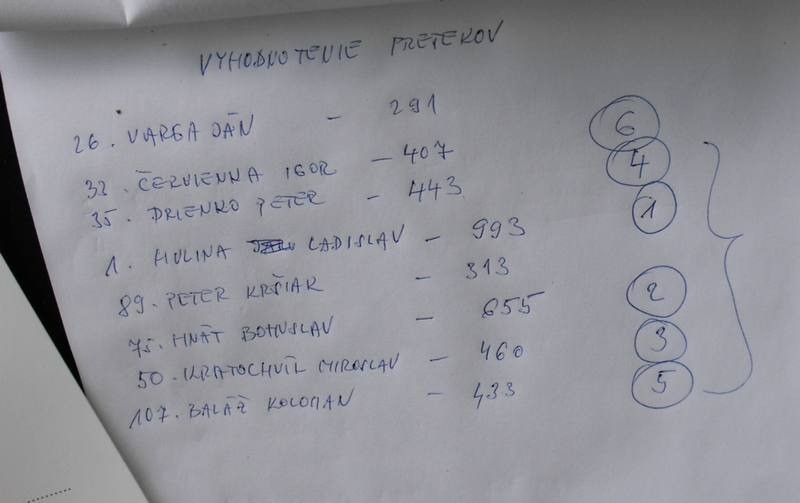 VYHODNOTENIE PRETEKOV
26. VARGA JÁN - 291 6
32. ČERVIENNA IGOR - 407 4
35. DRIENKO PETER - 443 1
1. HULINA LADISLAV - 993
89. PETER KRŠIAK - 313 2
75. HNÁT BOHUSLAV - 655 3
50. KRATOCHVÍL MIROSLAV - 460 5
107. BALÁŽ KOLOMAN - 433